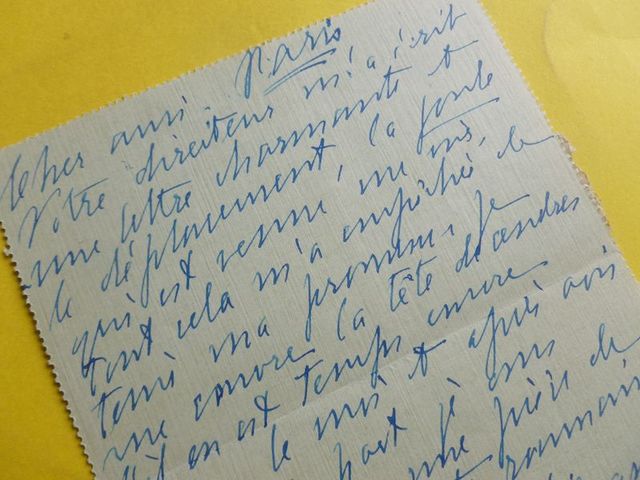 Paris
Cher ami
Votre directeur m'a écrit
une lettre charmante et
le déplacement, la foule
qui est venue me
Tout cela m'a empêché de
tenir ma promesse. Je
me encore la tête de cendres
S'il en est temps encore
le mois et après avoir
part je
une pièce de
roumain